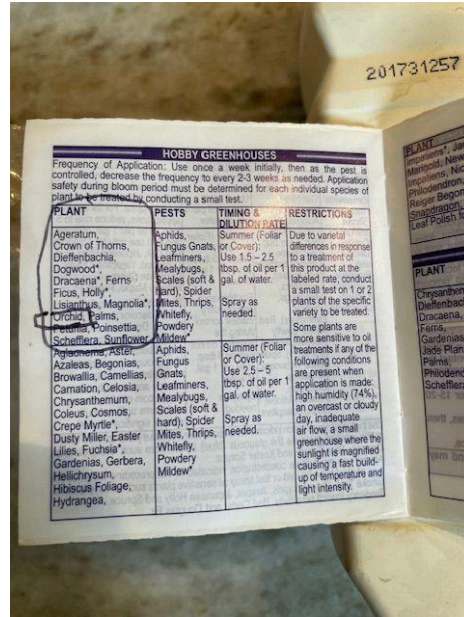 201731257
HOBBY GREENHOUSES
Frequency of Application: Use once a week initially, then as the pest is
controlled, decrease the frequency to every 2-3 weeks as needed. Application
safety during bloom period must be determined for each individual species of
plant to be treated by conducting a small test.
PLANT
Ageratum,
Crown of Thorns,
Dieffenbachia,
Dogwood*,
Dracaena*, Ferns
Ficus, Holly*,
Lisianthus, Magnolia*,
Orchid, Palms,
Petunia, Poinsettia,
Schefflera, Sunflower
PESTS
Aphids,
Fungus Gnats,
Leafminers,
Mealybugs,
Scales (soft &
hard), Spider
Mites, Thrips,
Whitefly,
Powdery
Mildew*
TIMING &
DILUTION RATE
Summer (Foliar
or Cover):
Use 1.5 – 2.5
tbsp. of oil per 1
gal. of water.
Spray as
needed.
RESTRICTIONS
Due to varietal
differences in response
to a treatment of
this product at the
labeled rate, conduct
a small test on 1 or 2
plants of the specific
variety to be treated.
Some plants are
more sensitive to oil
treatments if any of the
following conditions
are present when
application is made:
high humidity (74%),
an overcast or cloudy
day, inadequate
air flow, a small
greenhouse where the
sunlight is magnified
causing a fast build-
up of temperature and
light intensity.
Aglaonema, Aster,
Azaleas, Begonias,
Browallia, Camellias,
Carnation, Celosia,
Chrysanthemum,
Coleus, Cosmos,
Crepe Myrtle*,
Dusty Miller, Easter
Lilies, Fuchsia*,
Gardenias, Gerbera,
Hellichrysum,
Hibiscus Foliage,
Hydrangea,
Aphids,
Fungus
Gnats,
Leafminers,
Mealybugs,
Scales (soft &
hard), Spider
Mites, Thrips,
Whitefly,
Powdery
Mildew*
Summer (Foliar
or Cover):
Use 2.5 – 5
tbsp. of oil per 1
gal. of water.
Spray as
needed.
PLANT
Impatiens*,
Marigold, New
Impatiens,
Philodendron
Reiger
Snapdragon,
Leaf Polish
PLANT
Dracaena,
Ferns,
Gardenias
Jade Plan
Palms,